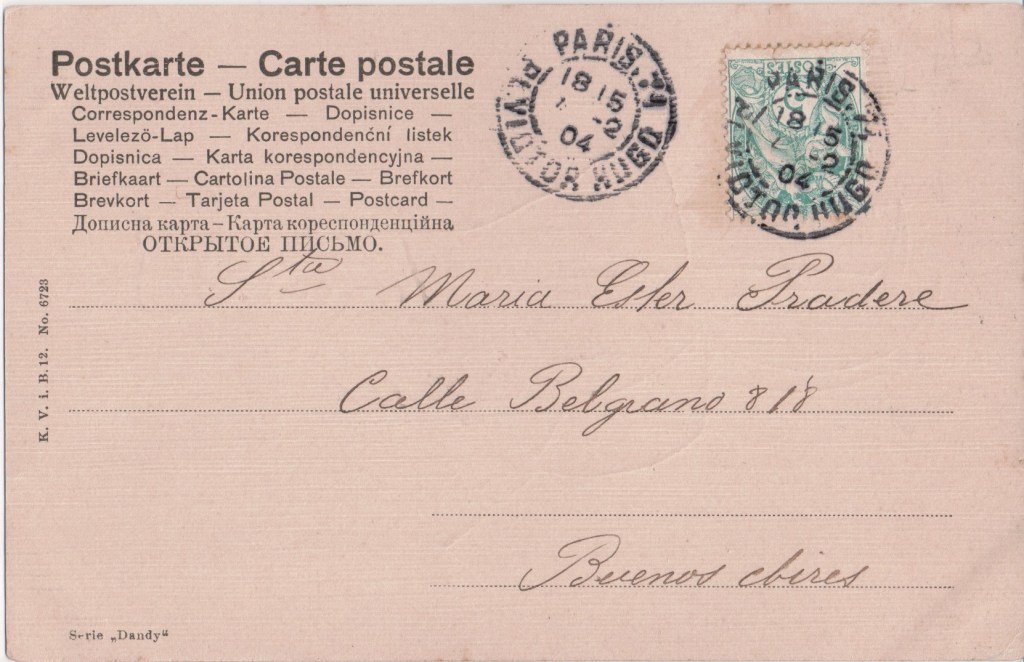 Postkarte — Carte postale
Weltpostverein — Union postale universelle
Correspondenz-Karte — Dopisnice —
Levelező-Lap — Korespondenční listek
Dopisnica — Karta korespondencyjna —
Briefkaart — Cartolina Postale — Brefkort
Brevkort — Tarjeta Postal — Postcard —
Дописна карта — Карта кореспонденційна
ОТКРЫТОЕ ПИСЬМО.
PARIS. 71
PL. VICTOR HUGO
18 15
2
04
POSTES
5
PARIS. 71
PL. VICTOR HUGO
18 15
2
04
Sta Maria Ester Pradere
Calle Belgrano 818
Buenos Aires
K. V. i. B. 12. No. 6723
Serie „Dandy“